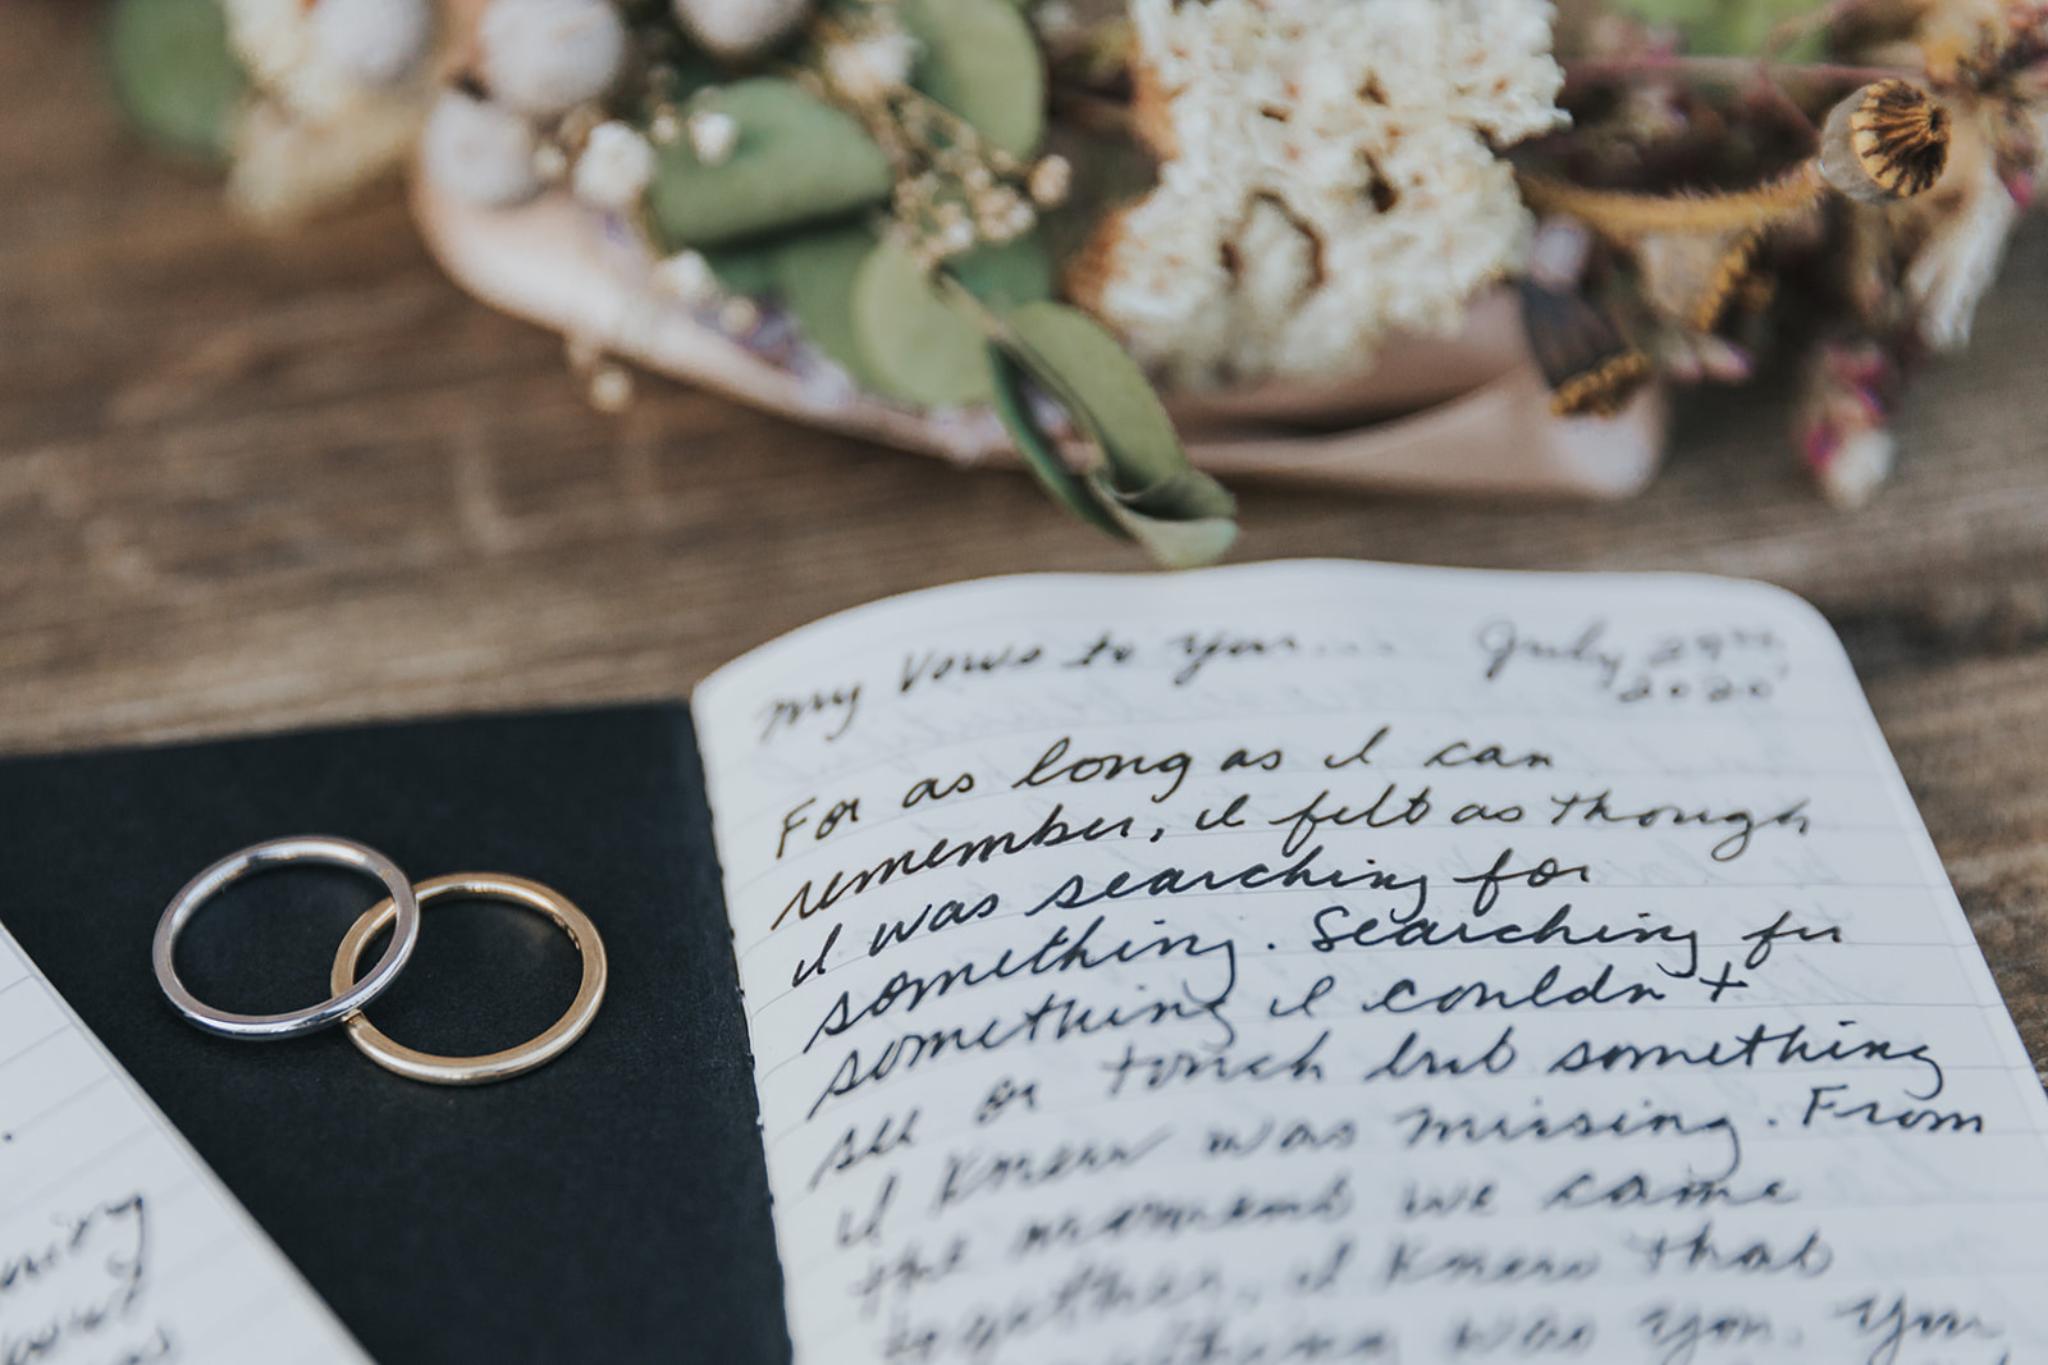 My Vows to you... July 29th,
2020
For as long as I can
remember, I felt as though
I was searching for
something. Searching for
something I couldn't
see or touch but something
I knew was missing. From
the moment we came
together, I knew that
was you. You